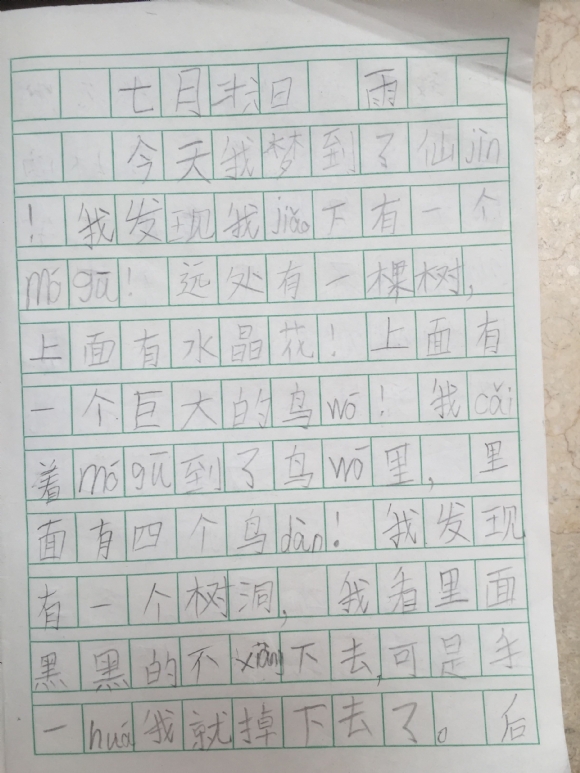 七月 日 雨
今天我梦到了仙jìn
！我发现我jiǎo下有一个
mó gū！远处有一棵树，
上面有水晶花！上面有
一个巨大的鸟wō！我cǎi
着mó gū到了鸟wō里，里
面有四个鸟dàn！我发现
有一个树洞，我看里面
黑黑的不xiǎng下去，可是手
一huá我就掉下去了。后